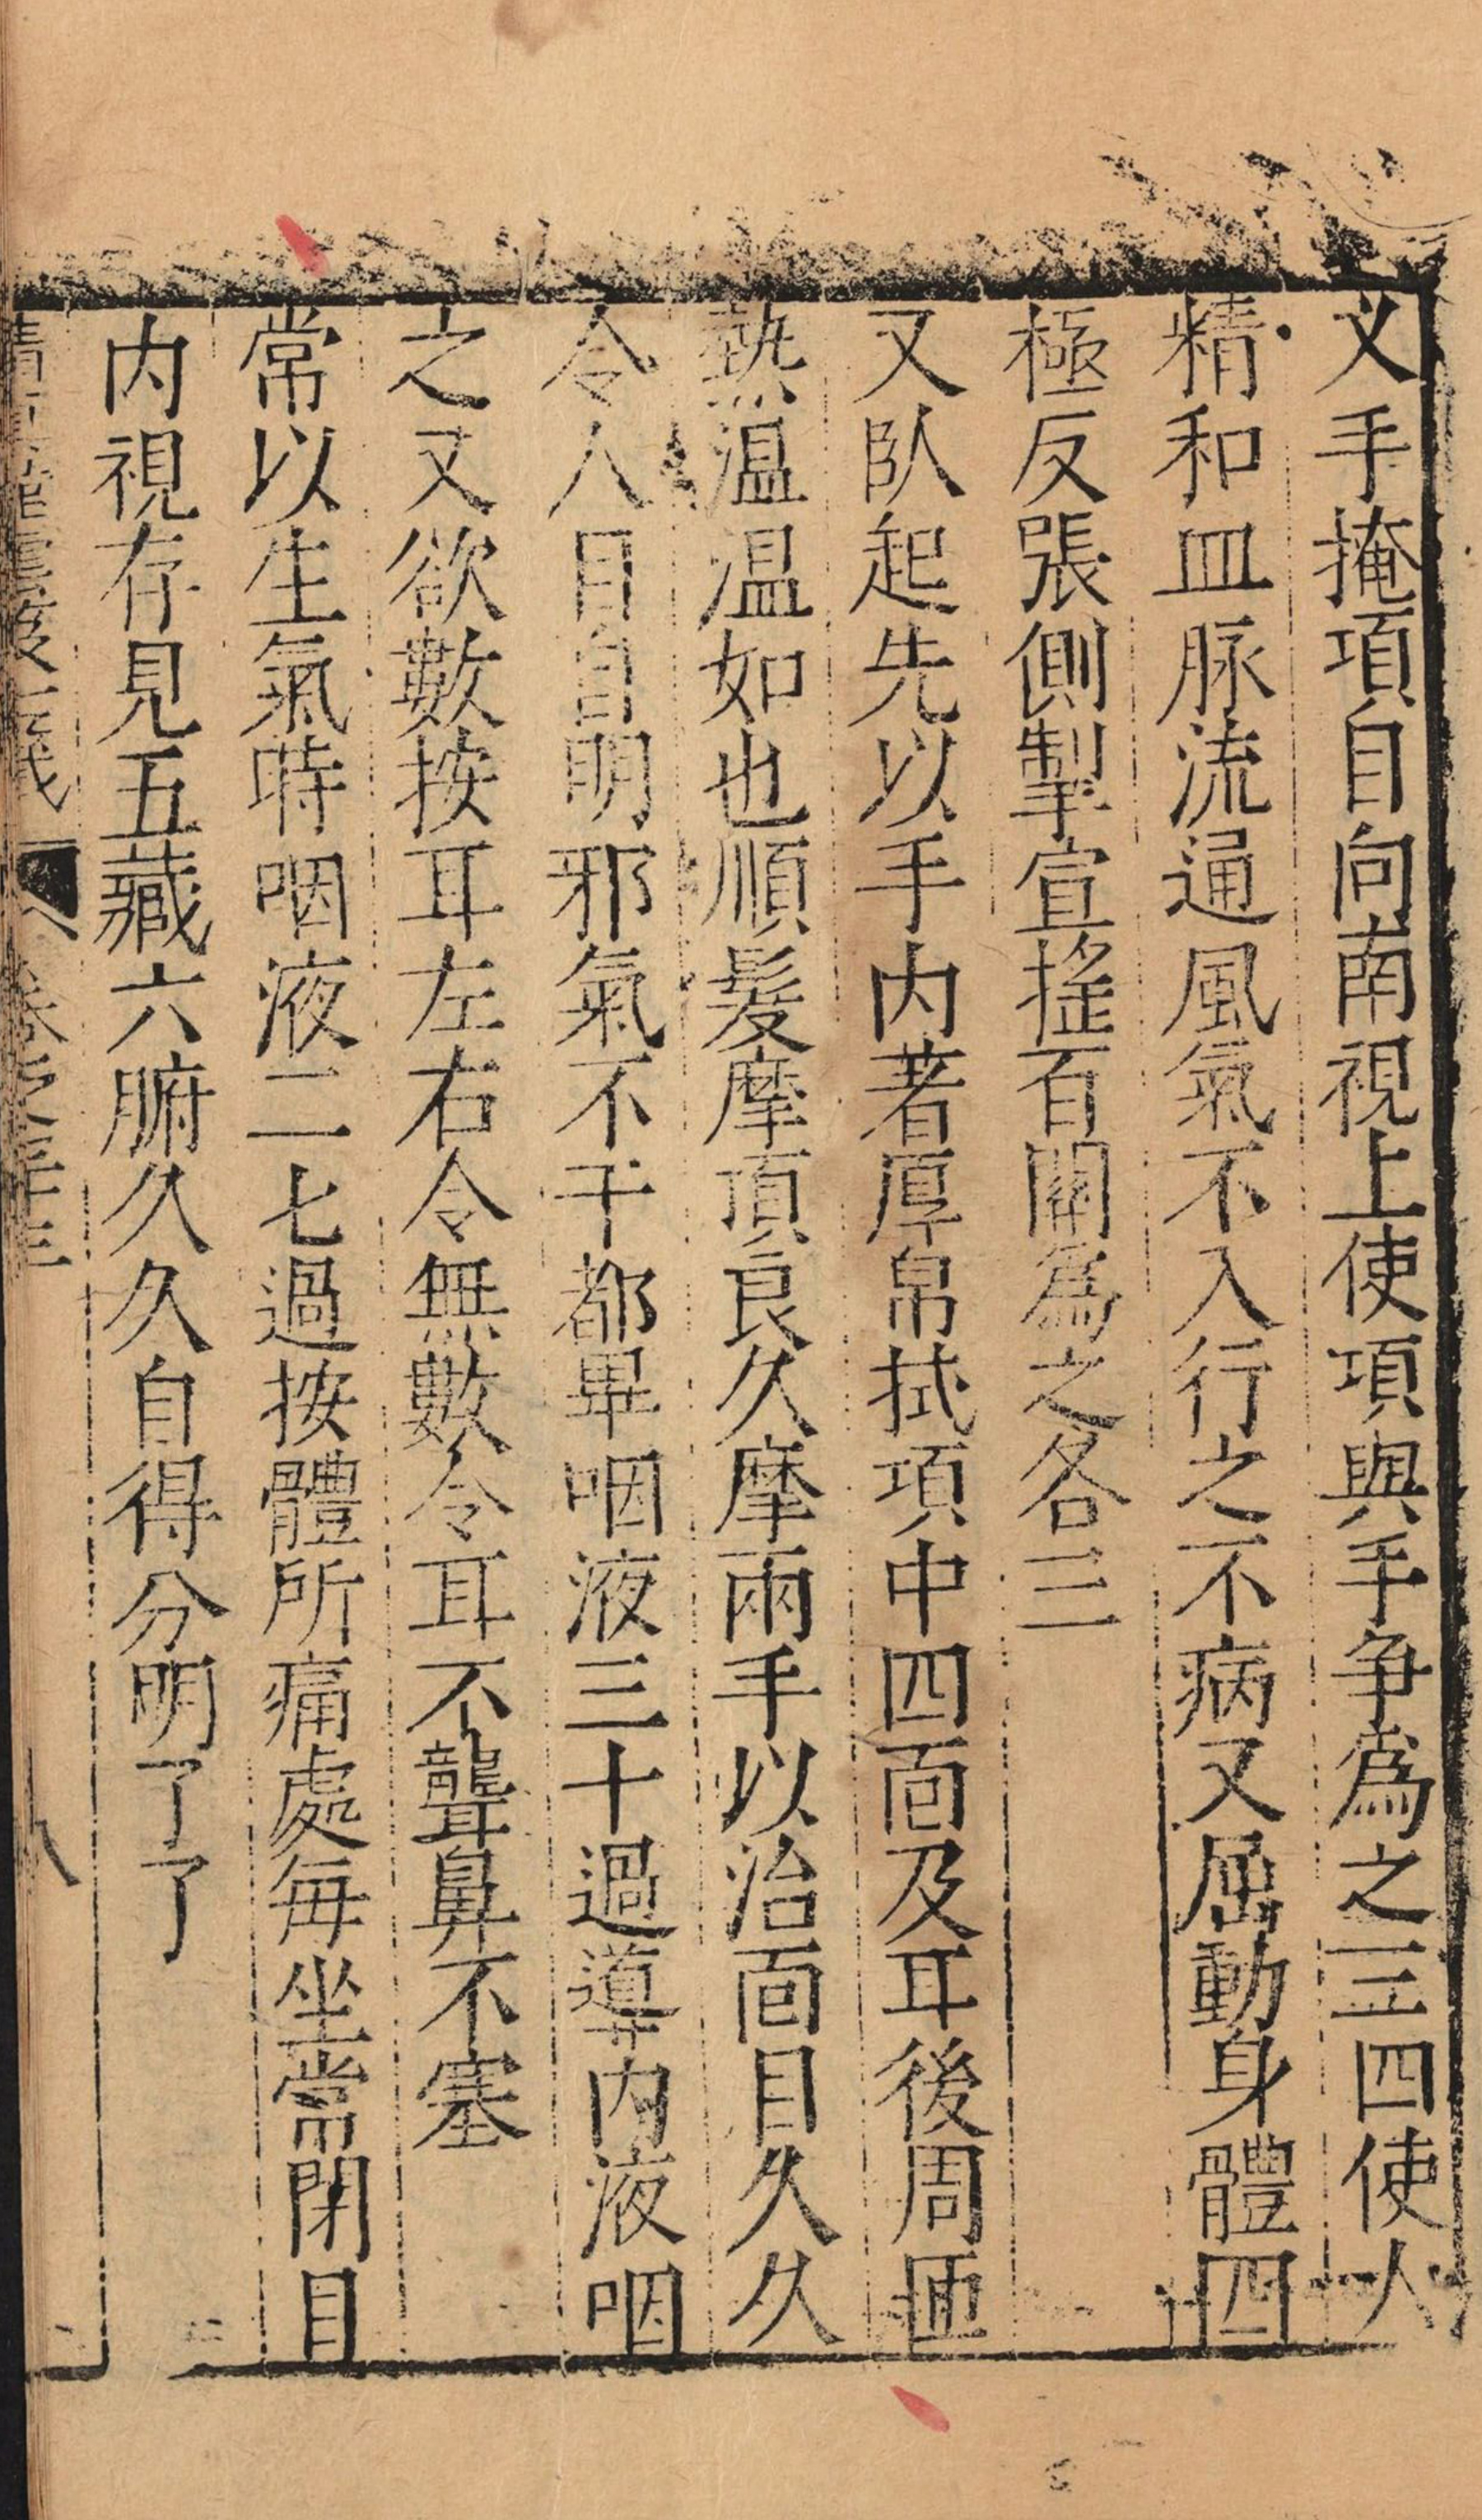 叉手掩項目向南視上使項與手争爲之三四使人
精和血脉流通風氣不入行之不病又屈動身體四
極反張側掣宣搖百關爲之各三
又臥起先以手内著厚帛拭項中四面及耳後周匝
熱温温如也順髮摩頂良久摩兩手以治面目久久
令人目自明邪氣不干都畢咽液三十過導内液咽
之又欲數按耳左右令無數令耳不聾鼻不塞
常以生氣時咽液二七過按體所痛處每坐常閉目
内視存見五藏六腑久久自得分明了了